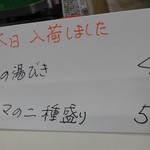 本日入荷しました
の湯びき
マの二種盛り